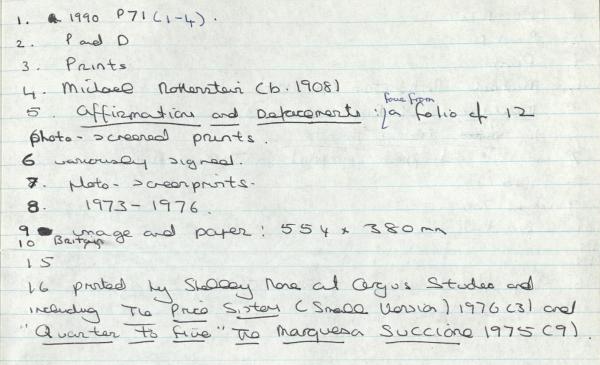 1. 1990 P71 (1-4).
2. P and D
3. Prints
4. Michael Rothenstein (b. 1908)
5. Affirmation and Defacements : four from a folio of 12
photo-screened prints.
6 variously signed.
7. Photo-screenprints.
8. 1973-1976.
9 image and paper : 554 x 380 mm
10 Britain
15
16 printed by Shelley Rose at Argus Studio and
including The Price Sisters (Small Version) 1976 (3) and
"Quarter to five" The Marquesa Succione 1975 (9).